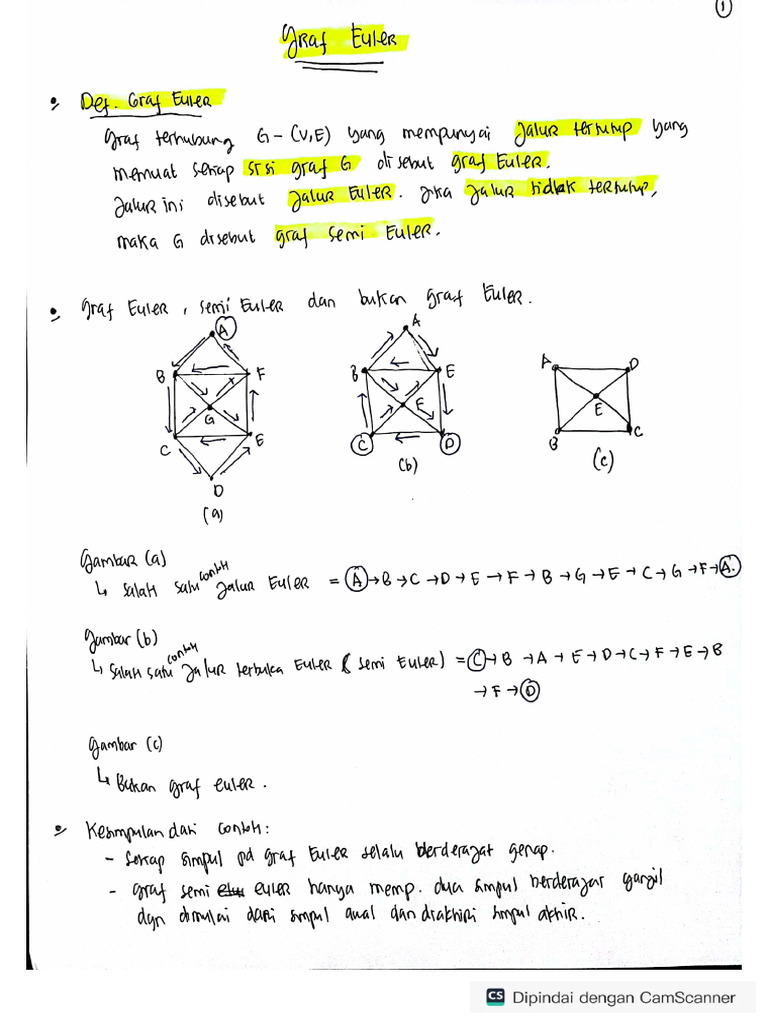 1
Graf Euler
Def. Graf Euler
Graf terhubung G = (V,E) yang mempunyai Jalur tertutup yang
memuat setiap sisi graf G disebut graf Euler.
Jalur ini disebut Jalur Euler. Jika Jalur tidak tertutup,
maka G disebut graf semi Euler.
Graf Euler, semi Euler dan bukan graf Euler.
A
B F
G
C E
D
(a)
A
B E
F
C D
(b)
A D
E
B C
(c)
Gambar (a)
↳ Salah satu contoh Jalur Euler = A → B → C → D → E → F → B → G → E → C → G → F → A.
Gambar (b)
↳ Salah satu contoh Jalur terbuka Euler (semi Euler) = C → B → A → E → D → C → F → E → B
→ F → D
Gambar (c)
↳ Bukan graf euler.
Kesimpulan dari contoh:
- Setiap simpul pd graf Euler selalu berderajat genap.
- graf semi euler hanya memp. dua simpul berderajat ganjil
dgn dimulai dari simpul awal dan diakhiri simpul akhir.
CS Dipindai dengan CamScanner